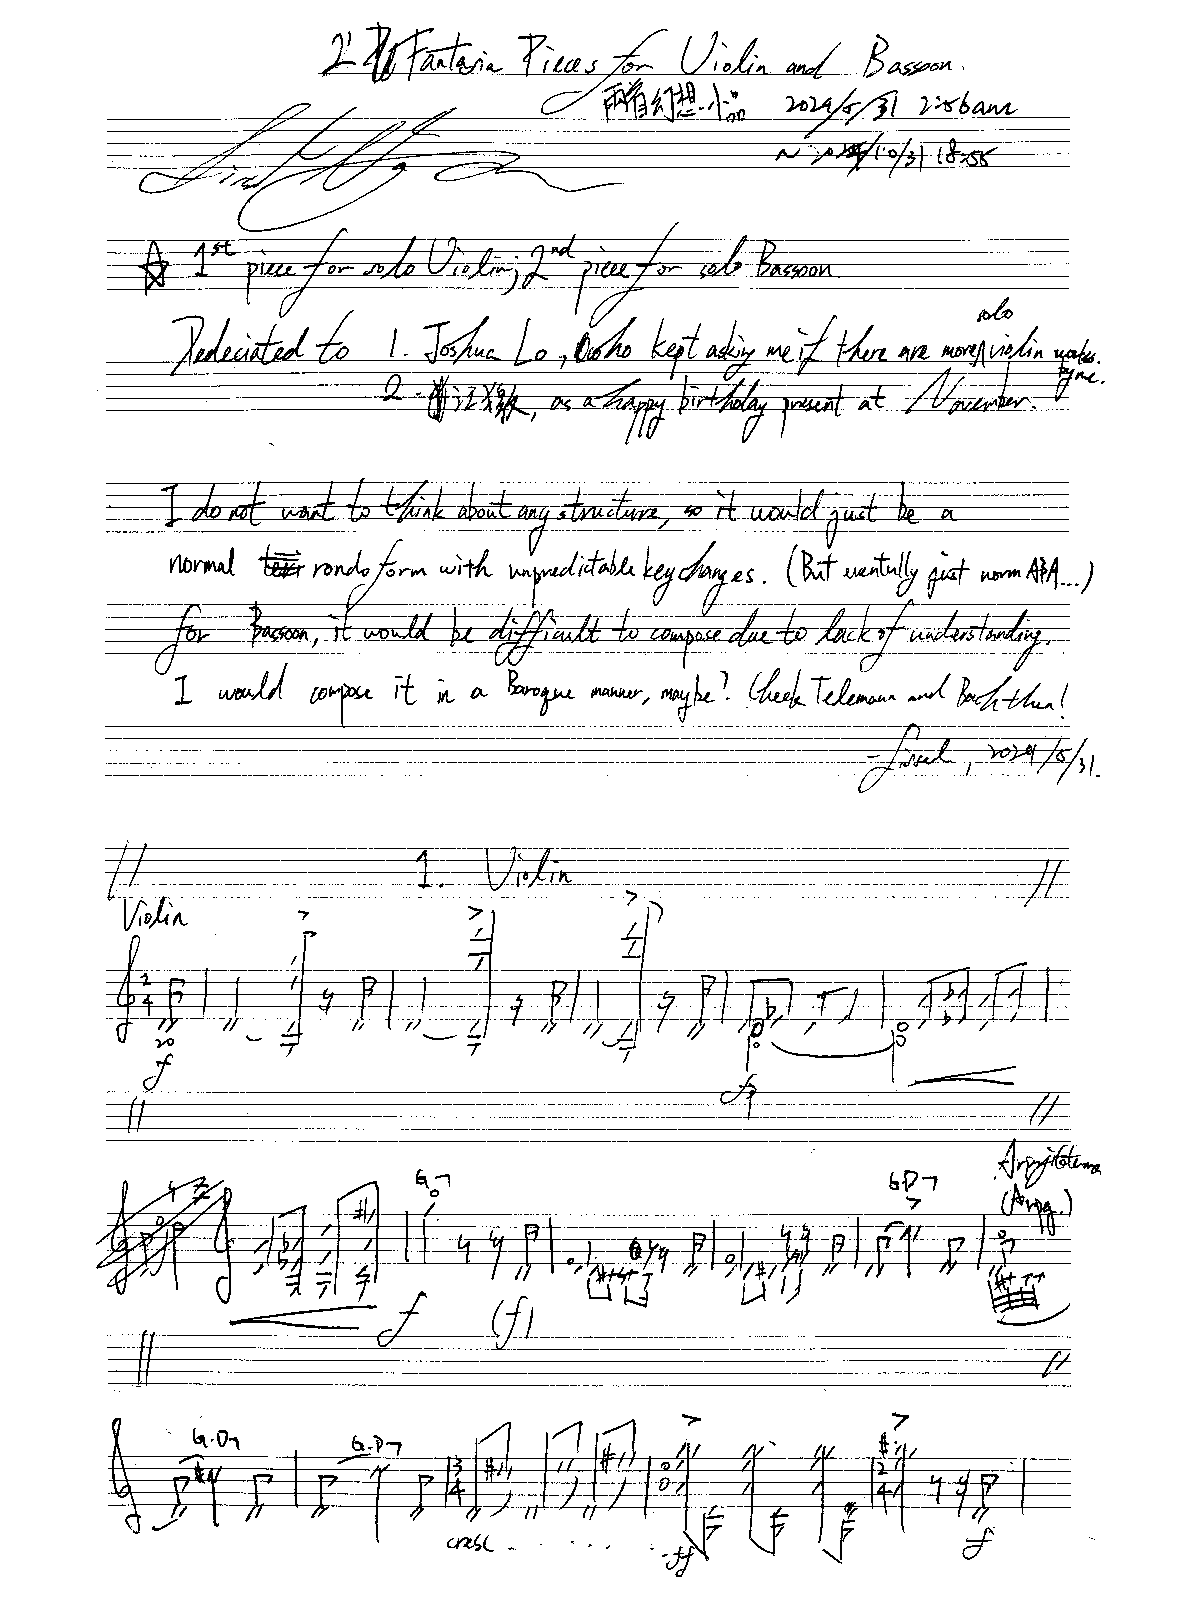 2 Fantasia Pieces for Violin and Bassoon.
兩首幻想小品 2024/5/31 2:56am
~ 2024/10/31 18:55
☆ 1st piece for solo Violin; 2nd piece for solo Bassoon
Dedeciated to 1. Joshua Lo, who kept asking me if there are more solo violin works by me.
2. as a happy birthday present at November.
I do not want to think about any structure, so it would just be a
normal rondo form with unpredictable key changes. (But eventully just norm ABA...)
for Bassoon, it would be difficult to compose due to lack of understanding.
I would compose it in a Baroque manner, maybe? Check Telemann and Bach then!
2024/5/31.
1. Violin
Violin
2
4
f
G
G.D
(Arpg.)
f (f)
G.D G.D
3
4
2
4
cresc . . . . . . ff f